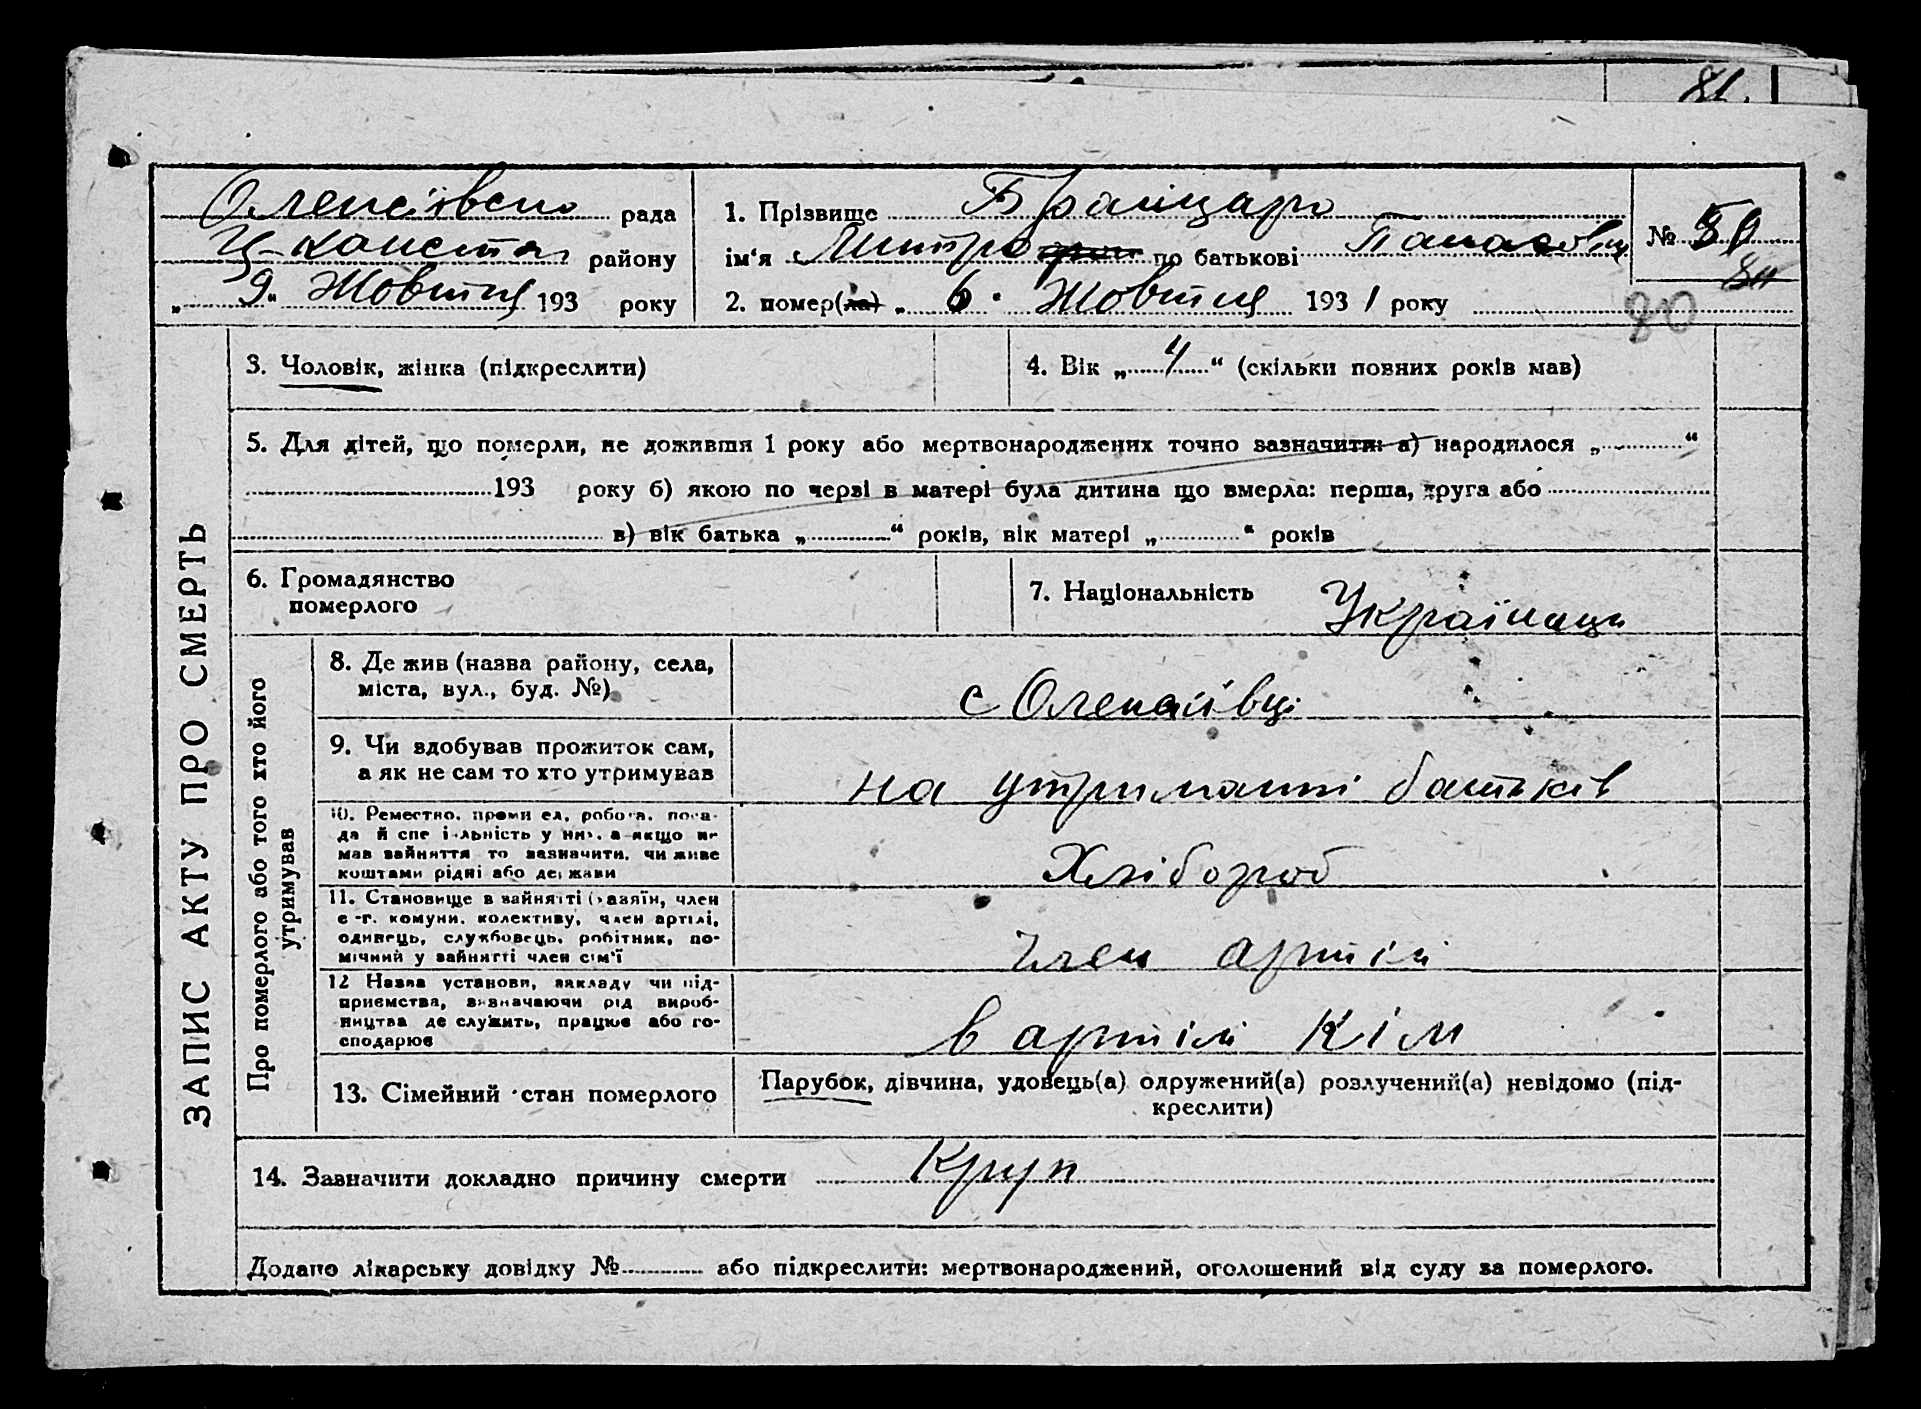 81.
Олексіївсько рада
району
„ 9 “ Жовтня 193 року
1. Прізвище
ім'я Митро по батькові Панасовіч
2. помер(ла) „ 6 “ Жовтня 1931 року
№
90
ЗАПИС АКТУ ПРО СМЕРТЬ
3. Чоловік, жінка (підкреслити)
4. Вік „ 4 “ (скільки повних років мав)
5. Для дітей, що померли, не доживши 1 року або мертвонароджених точно зазначити: а) народилося „ “
193 року б) якою по черзі в матері була дитина що вмерла: перша, друга або
в) вік батька „ “ років, вік матері „ “ років
6. Громадянство
померлого
7. Національність Українець
Про померлого або того хто його
утримував
8. Де жив (назва району, села,
міста, вул., буд. №)
с Олексіївці
9. Чи здобував прожиток сам,
а як не сам то хто утримував
на утриманні батьків
10. Ремество, промисел, робота, поса-
да й спеціяльність у них, а якщо не
мав зайняття то зазначити, чи живе
коштами рідні або держави
Хлібороб
11. Становище в зайнятті (хазяїн, член
с.-г. комуни, колективу, член артілі,
одинець, службовець, робітник, по-
мічний у зайнятті член сім'ї
Член артілі
12 Назва установи, закладу чи під-
приємства, визначаючи рід вироб-
ництва де служить, працює або го-
сподарює
в артілі КІМ
13. Сімейний стан померлого
Парубок, дівчина, удовець(а) одружений(а) розлучений(а) невідомо (під-
креслити)
14. Зазначити докладно причину смерти Круп
Додано лікарську довідку № або підкреслити: мертвонароджений, оголошений від суду за померлого.